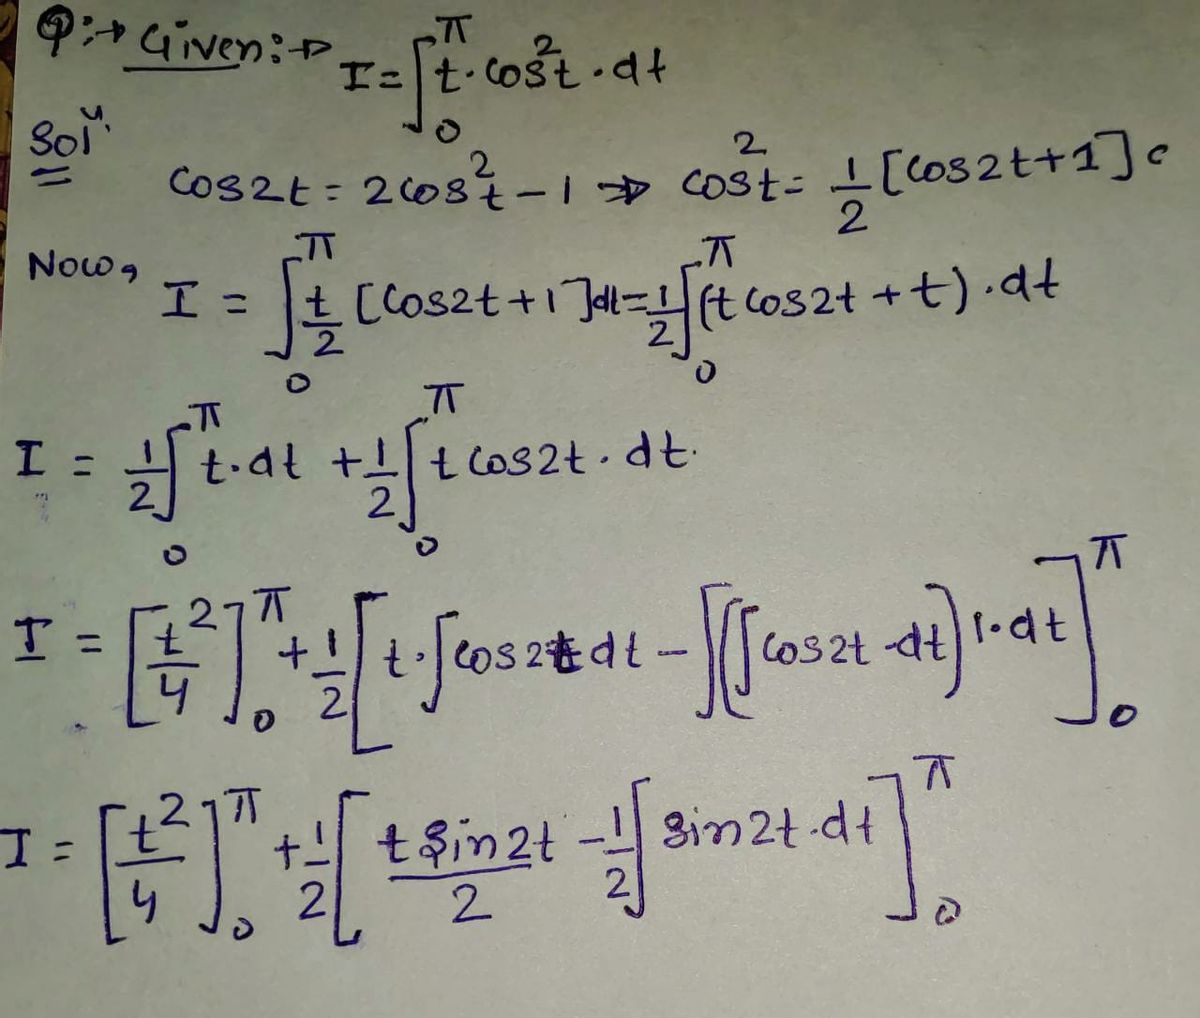 Q:→ Given:→ I = ∫₀^π t·cos²t·dt
Solⁿ.
cos2t = 2cos²t - 1 ⇒ cos²t = 1/2 [cos2t+1]
Now, I = ∫₀^π t/2 [cos2t+1]dt = 1/2 ∫₀^π (t cos2t + t)·dt
I = 1/2 ∫₀^π t·dt + 1/2 ∫₀^π t cos2t·dt.
I = [t²/4]₀^π + 1/2 [t·∫cos2t dt - ∫(∫cos2t·dt) 1·dt]₀^π
I = [t²/4]₀^π + 1/2 [t sin2t/2 - 1/2 ∫ sin2t·dt]₀^π